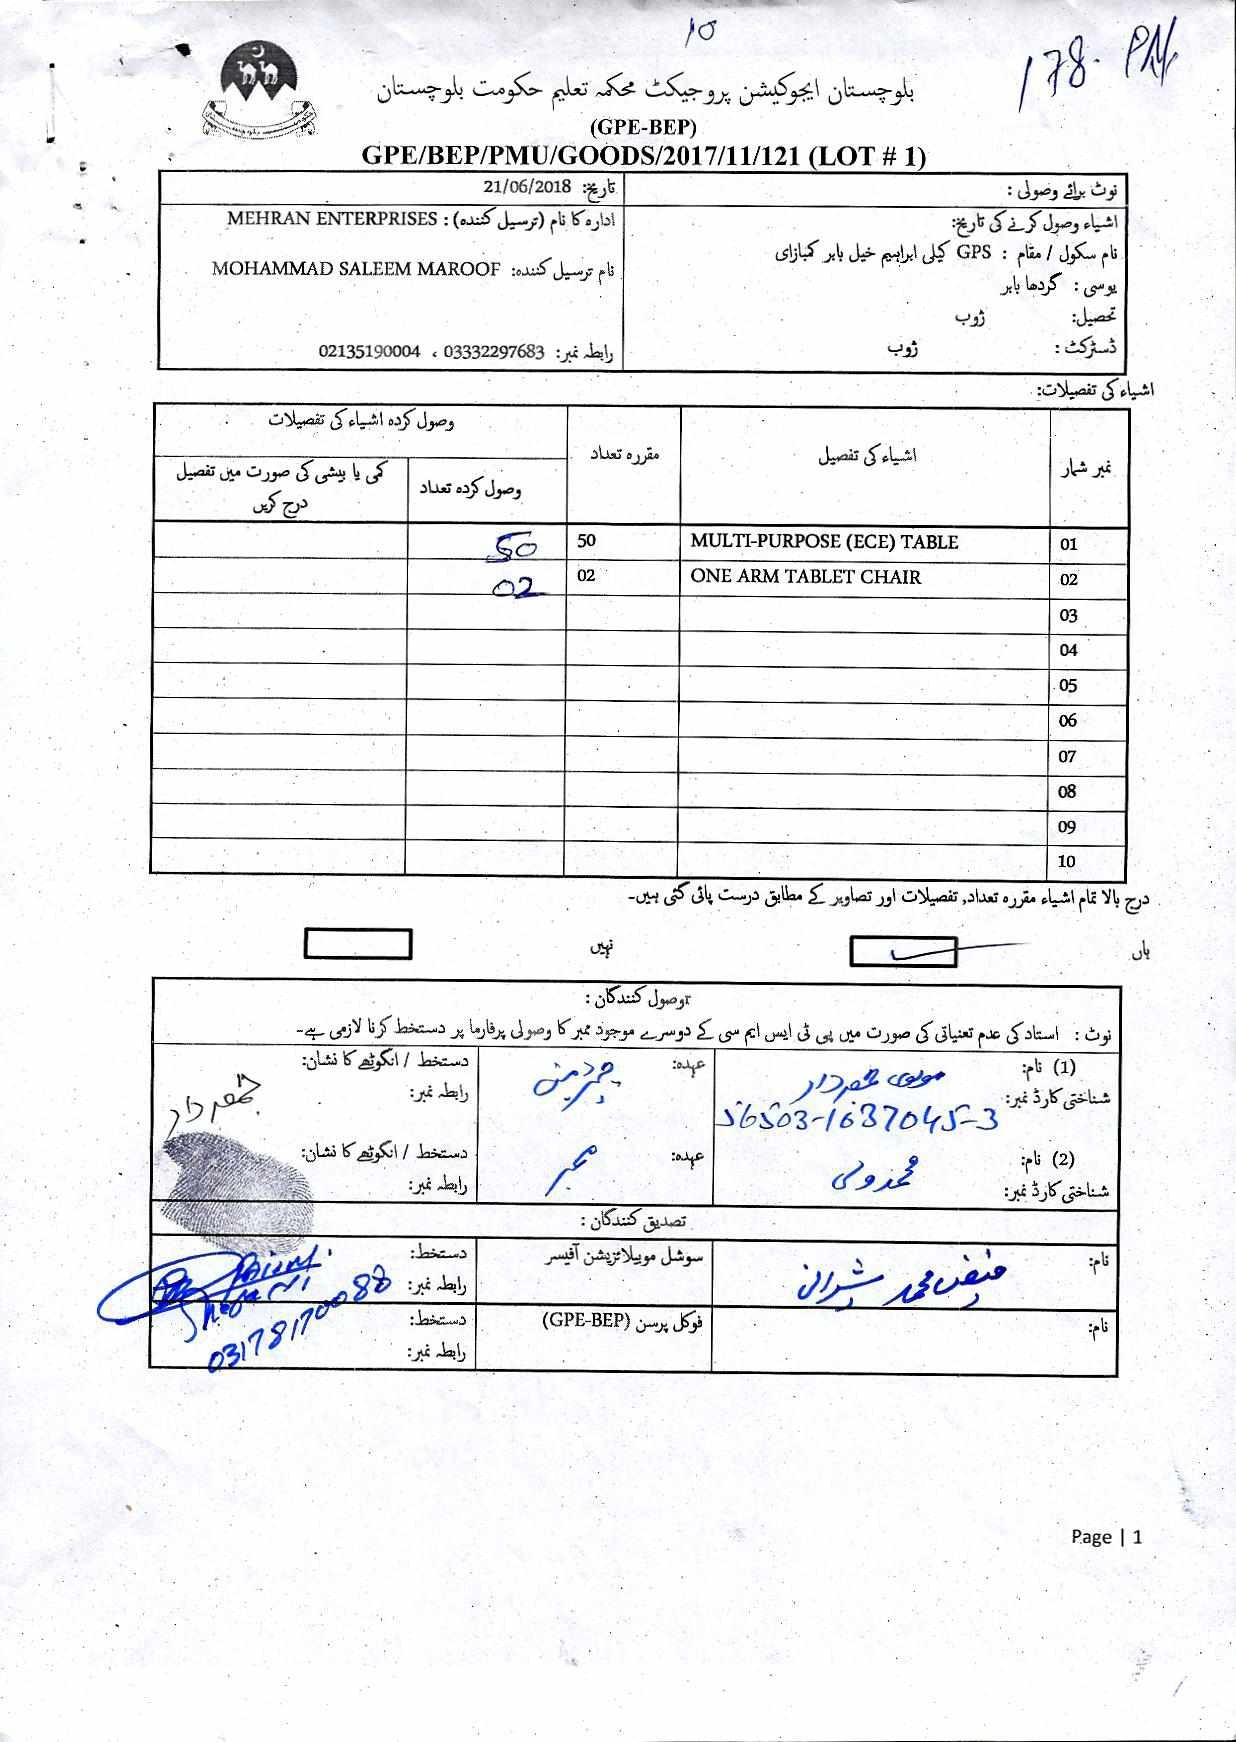 10
178. PM
بلوچستان ایجوکیشن پروجیکٹ محکمہ تعلیم حکومت بلوچستان
(GPE-BEP)
GPE/BEP/PMU/GOODS/2017/11/121 (LOT # 1)
نوٹ برائے وصولی :
تاریخ: 21/06/2018
اشیاء وصول کرنے کی تاریخ:
نام سکول / مقام : GPS کیلی ابراہیم خیل بابر کمبازای
یوسی : گردھا بابر
تحصیل: ژوب
ڈسٹرکٹ : ژوب
ادارہ کا نام (ترسیل کنندہ) : MEHRAN ENTERPRISES
نام ترسیل کنندہ: MOHAMMAD SALEEM MAROOF
رابطہ نمبر: 03332297683 ، 02135190004
اشیاء کی تفصیلات:
نمبر شمار اشیاء کی تفصیل مقررہ تعداد وصول کردہ اشیاء کی تفصیلات
وصول کردہ تعداد کمی یا بیشی کی صورت میں تفصیل درج کریں
01 MULTI-PURPOSE (ECE) TABLE 50 50
02 ONE ARM TABLET CHAIR 02 02
03
04
05
06
07
08
09
10
درج بالا تمام اشیاء مقررہ تعداد, تفصیلات اور تصاویر کے مطابق درست پائی گئی ہیں۔
ہاں نہیں
وصول کنندگان :
نوٹ : استاد کی عدم تعنیاتی کی صورت میں پی ٹی ایس ایم سی کے دوسرے موجود ممبر کا وصولی پرفارما پر دستخط کرنا لازمی ہے۔
(1) نام: مولوی جمعردار عہدہ: چیرمین دستخط / انگوٹھے کا نشان: جمعردار
شناختی کارڈ نمبر: 56503-1637045-3 رابطہ نمبر:
(2) نام: محمد ولی عہدہ: ممبر دستخط / انگوٹھے کا نشان:
شناختی کارڈ نمبر: رابطہ نمبر:
تصدیق کنندگان :
نام: فیض محمد شیرانی سوشل موبیلائزیشن آفیسر دستخط:
رابطہ نمبر: 03178170088
نام: فوکل پرسن (GPE-BEP) دستخط:
رابطہ نمبر:
Page | 1